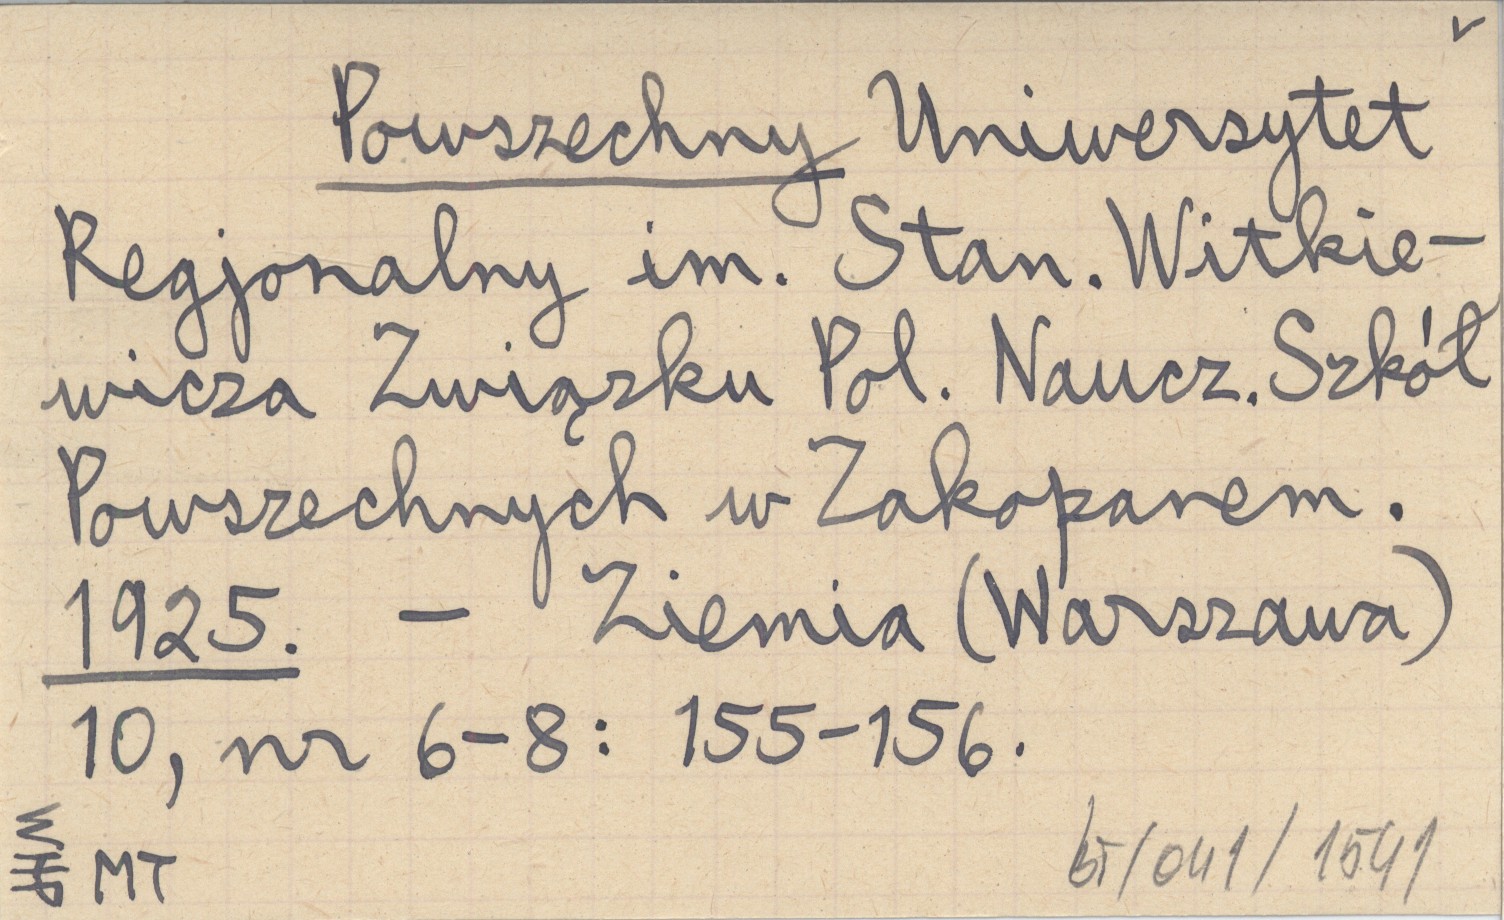 v
Powszechny Uniwersytet
Regjonalny im. Stan. Witkie-
wicza Związku Pol. Naucz. Szkół
Powszechnych w Zakopanem.
1925. – Ziemia (Warszawa)
10, nr 6-8: 155-156.
MT
bT/041/1541